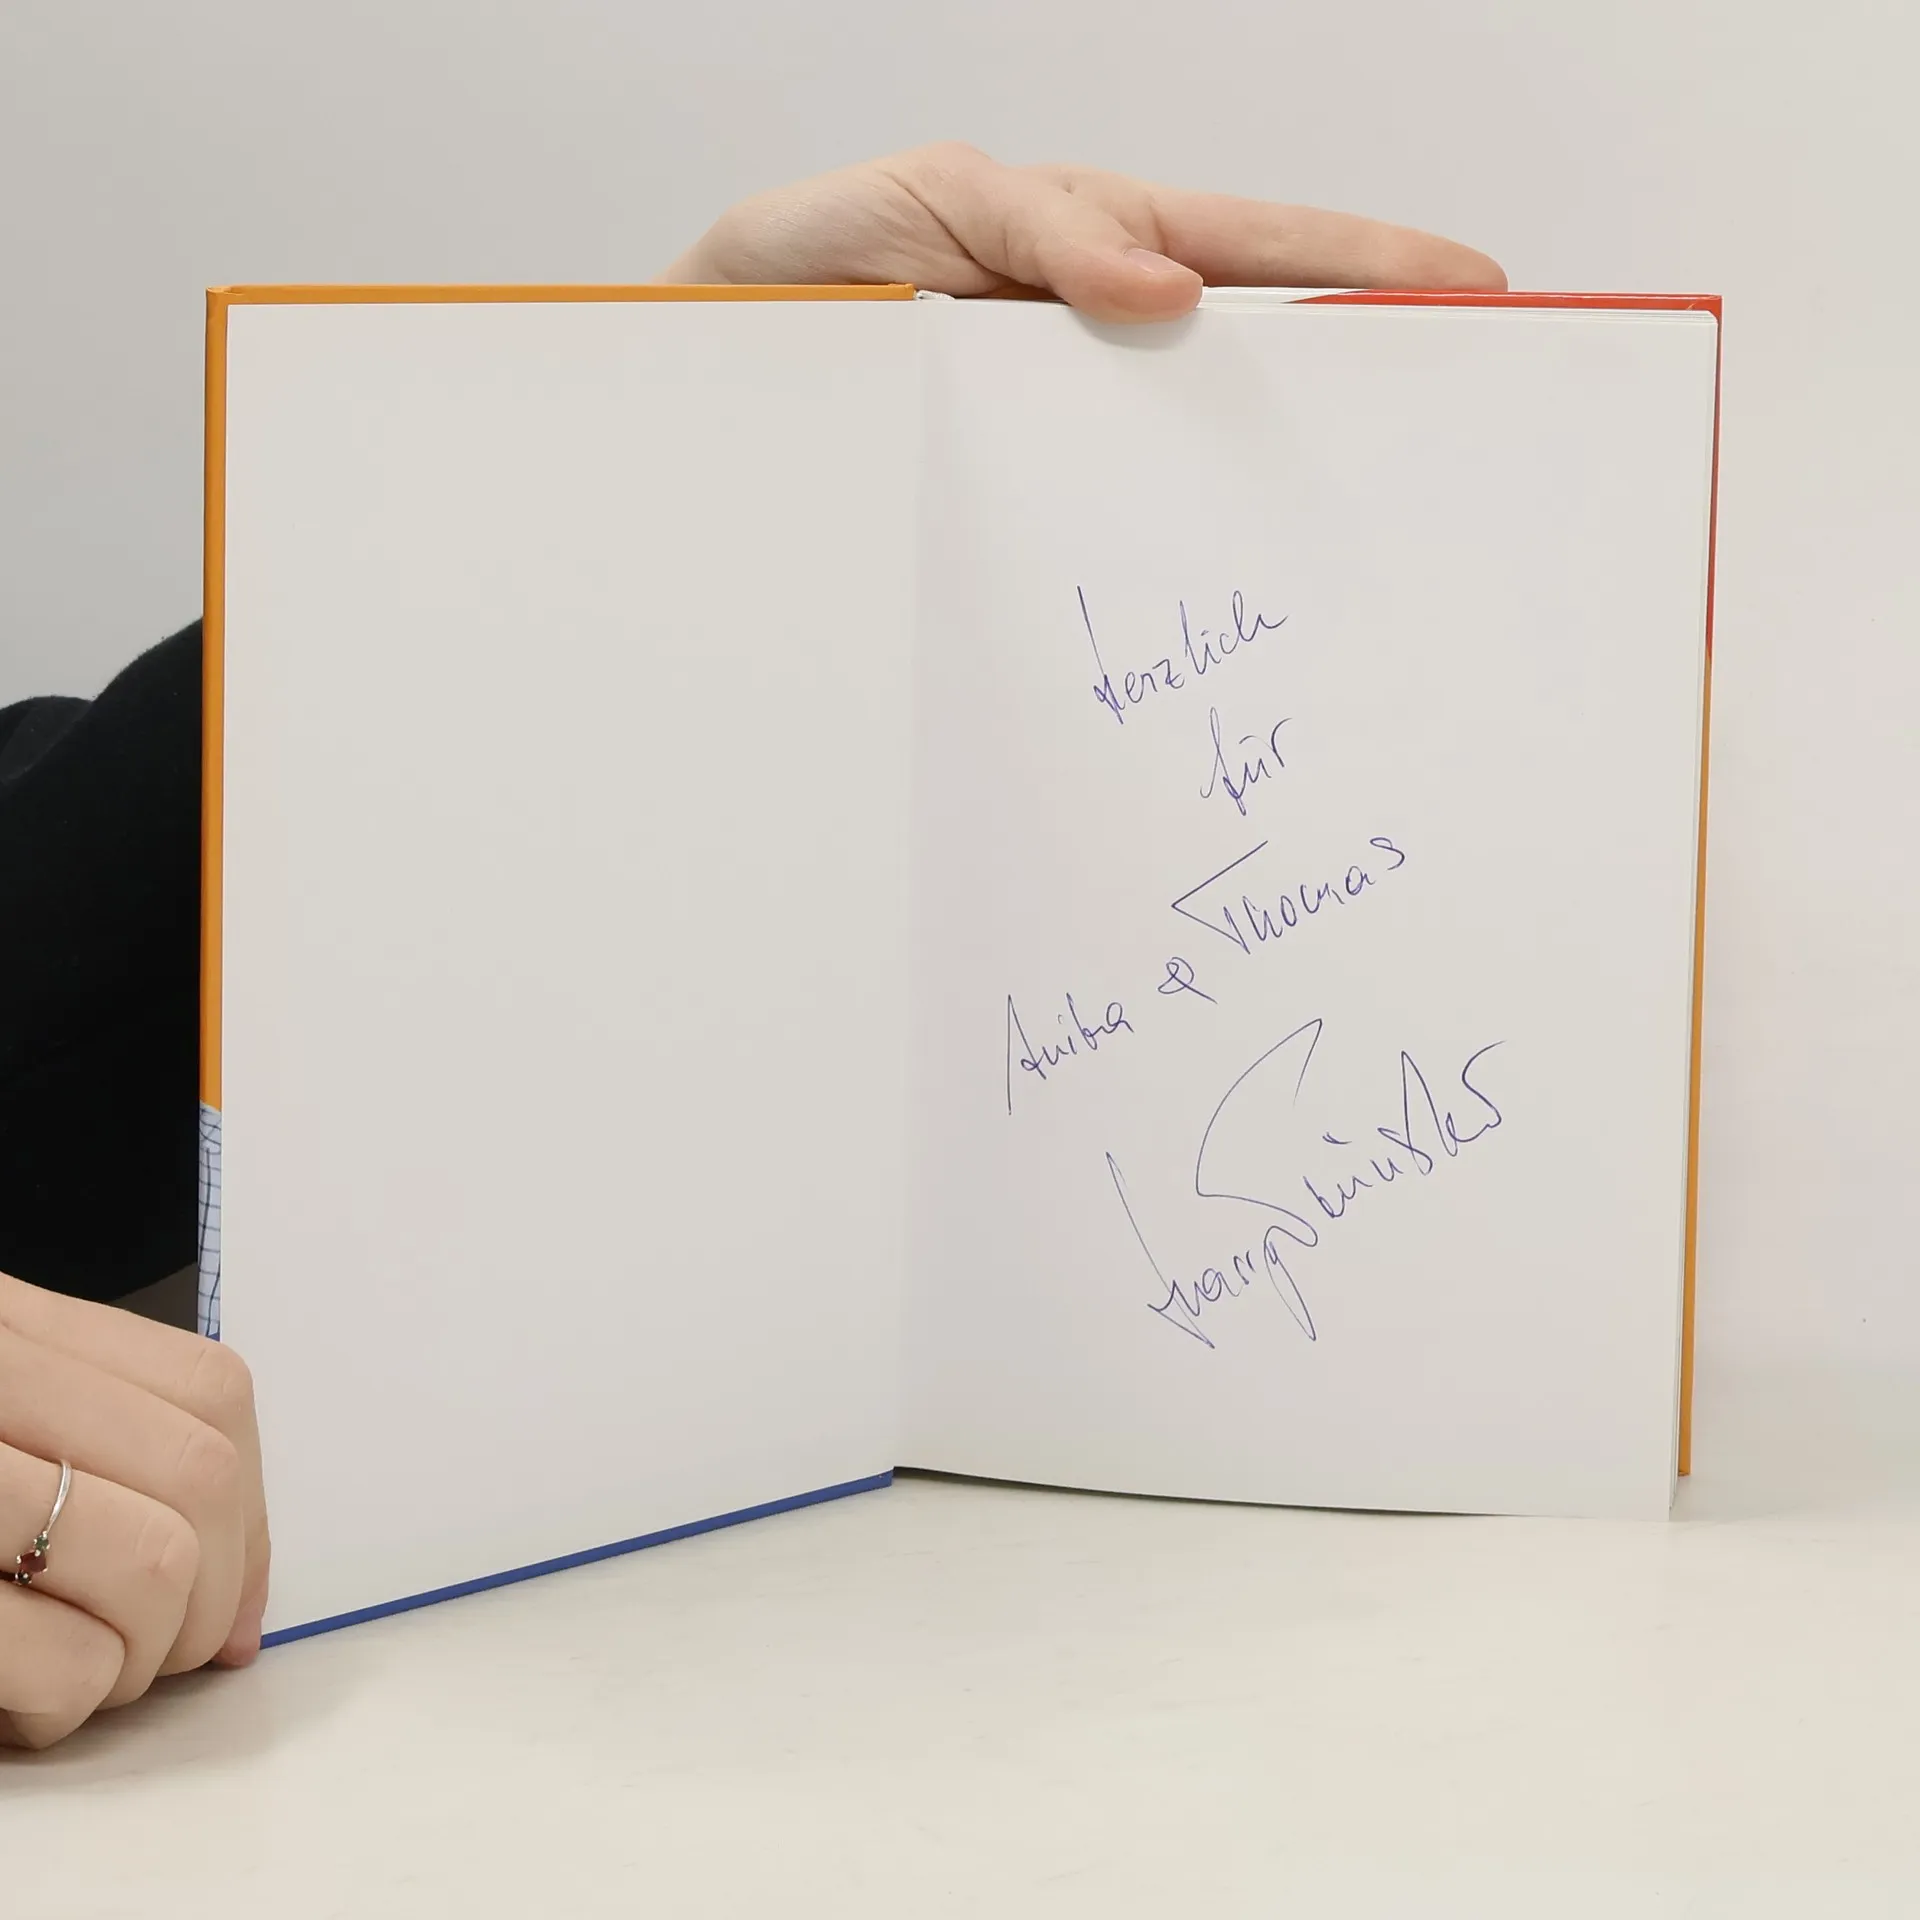 herzlich
für
Anita & Thomas